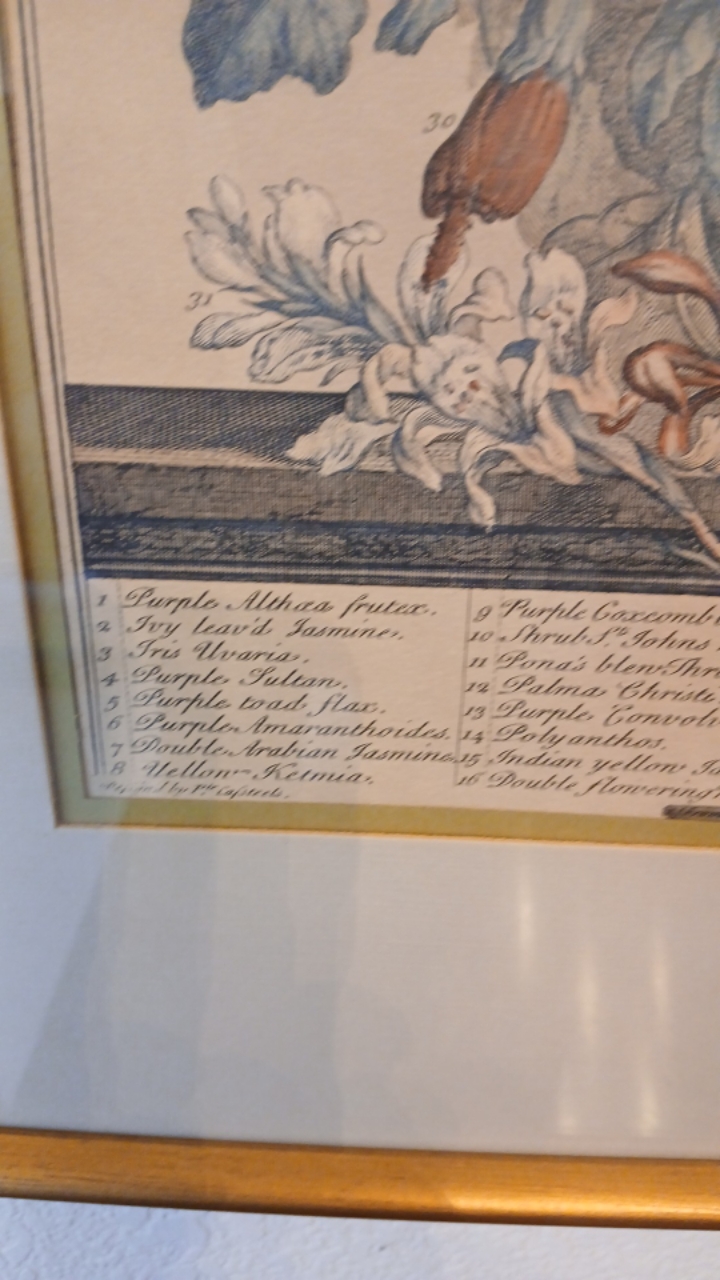 30
31
1 Purple Althæa frutex.
2 Ivy leav'd Jasmine.
3 Iris Uvaria.
4 Purple Sultan.
5 Purple toad flax.
6 Purple Amaranthoides.
7 Double Arabian Jasmine.
8 Yellow Ketmia.
9 Purple Coxcomb
10 Shrub St. Johns
11 Pona's blew
12 Palma Christi
13 Purple
14 Polyanthos.
15 Indian yellow
16 Double flowering
by Pr. Casteels.